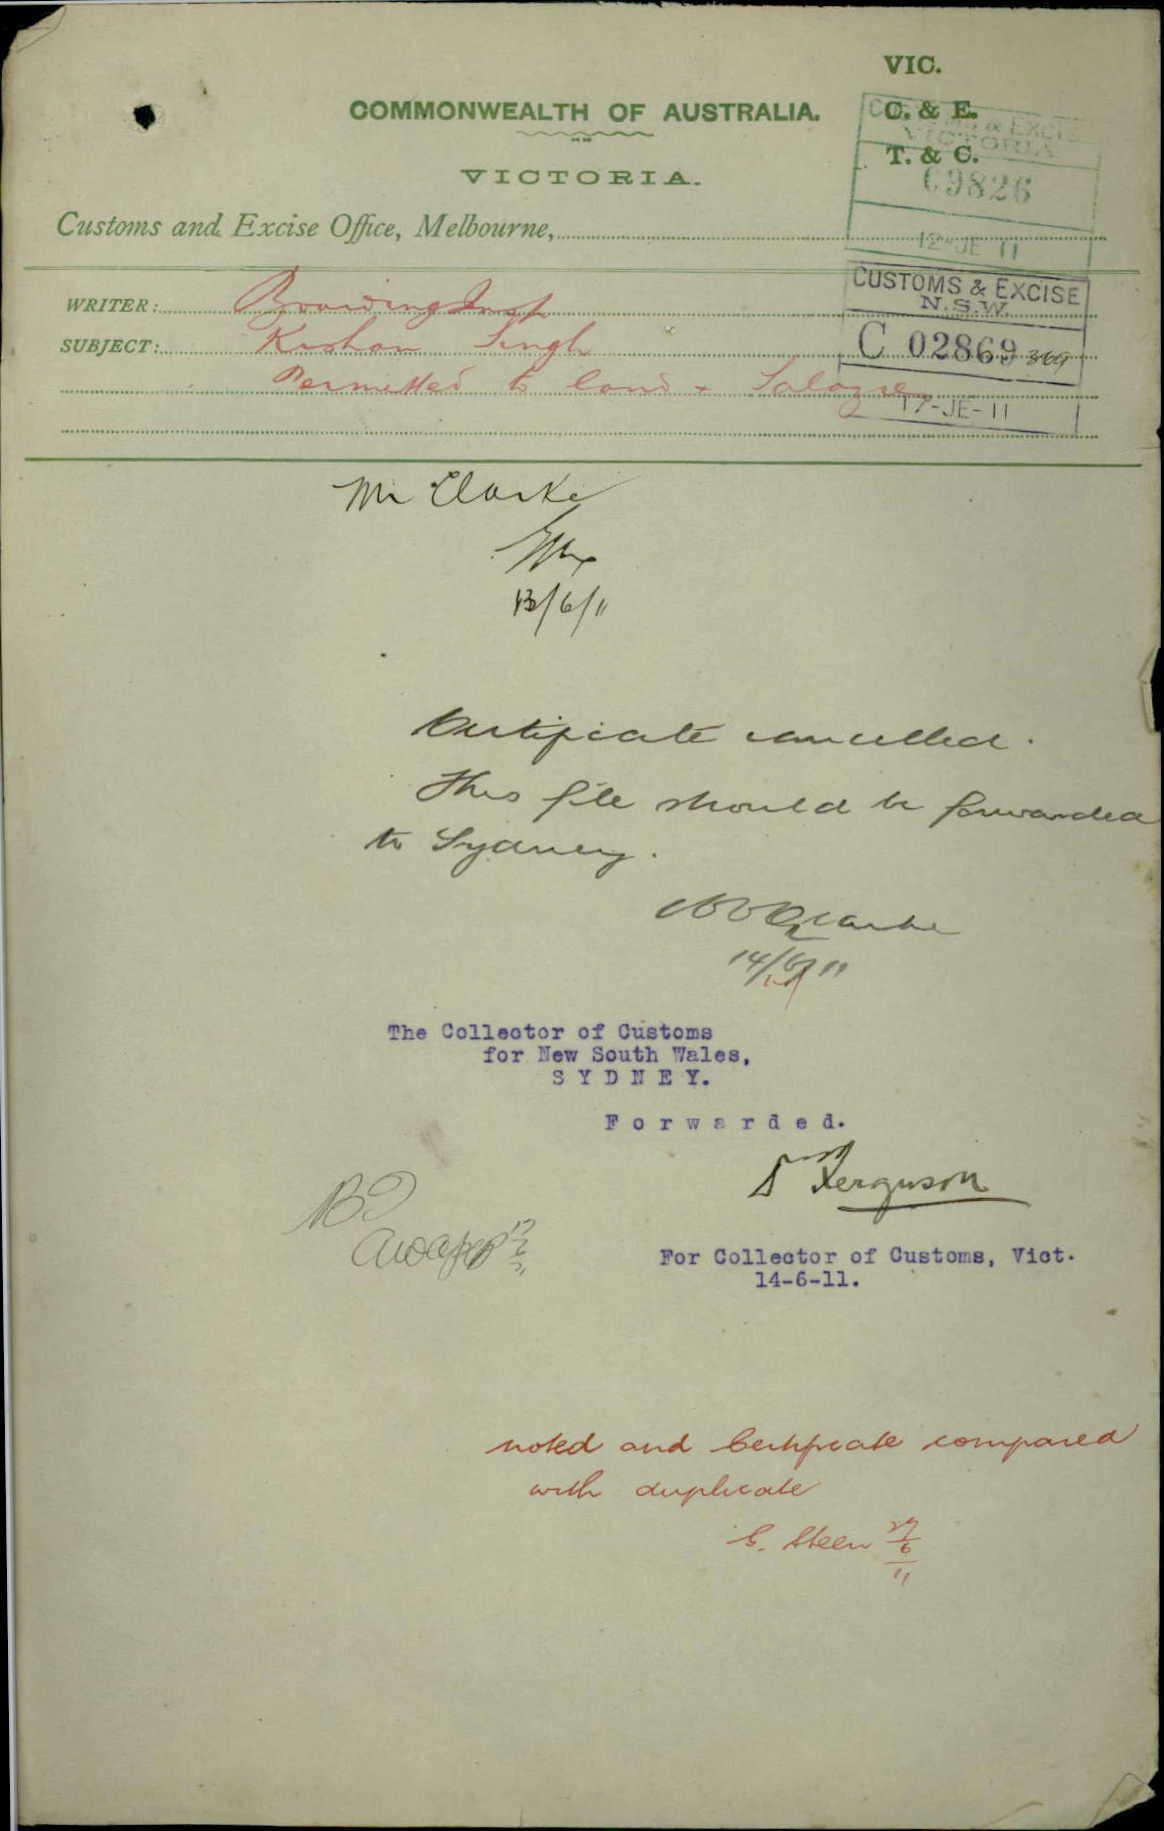 VIC.
COMMONWEALTH OF AUSTRALIA.
C. & E.
T. & C.
VICTORIA.
09826
12-JE 11
Customs and Excise Office, Melbourne,
WRITER: Boarding Insp
CUSTOMS & EXCISE
N.S.W.
SUBJECT: Kishan Singh
C 02869
Permitted to land &
17-JE-11
Mr Clarke
13/6/11
Certificate cancelled.
This file should be forwarded
to Sydney.
Clarke
14/6/11
The Collector of Customs
for New South Wales,
SYDNEY.
Forwarded.
Ferguson
For Collector of Customs, Vict.
14-6-11.
noted and Certificate compared
with duplicate
G. Steen 27/6/11